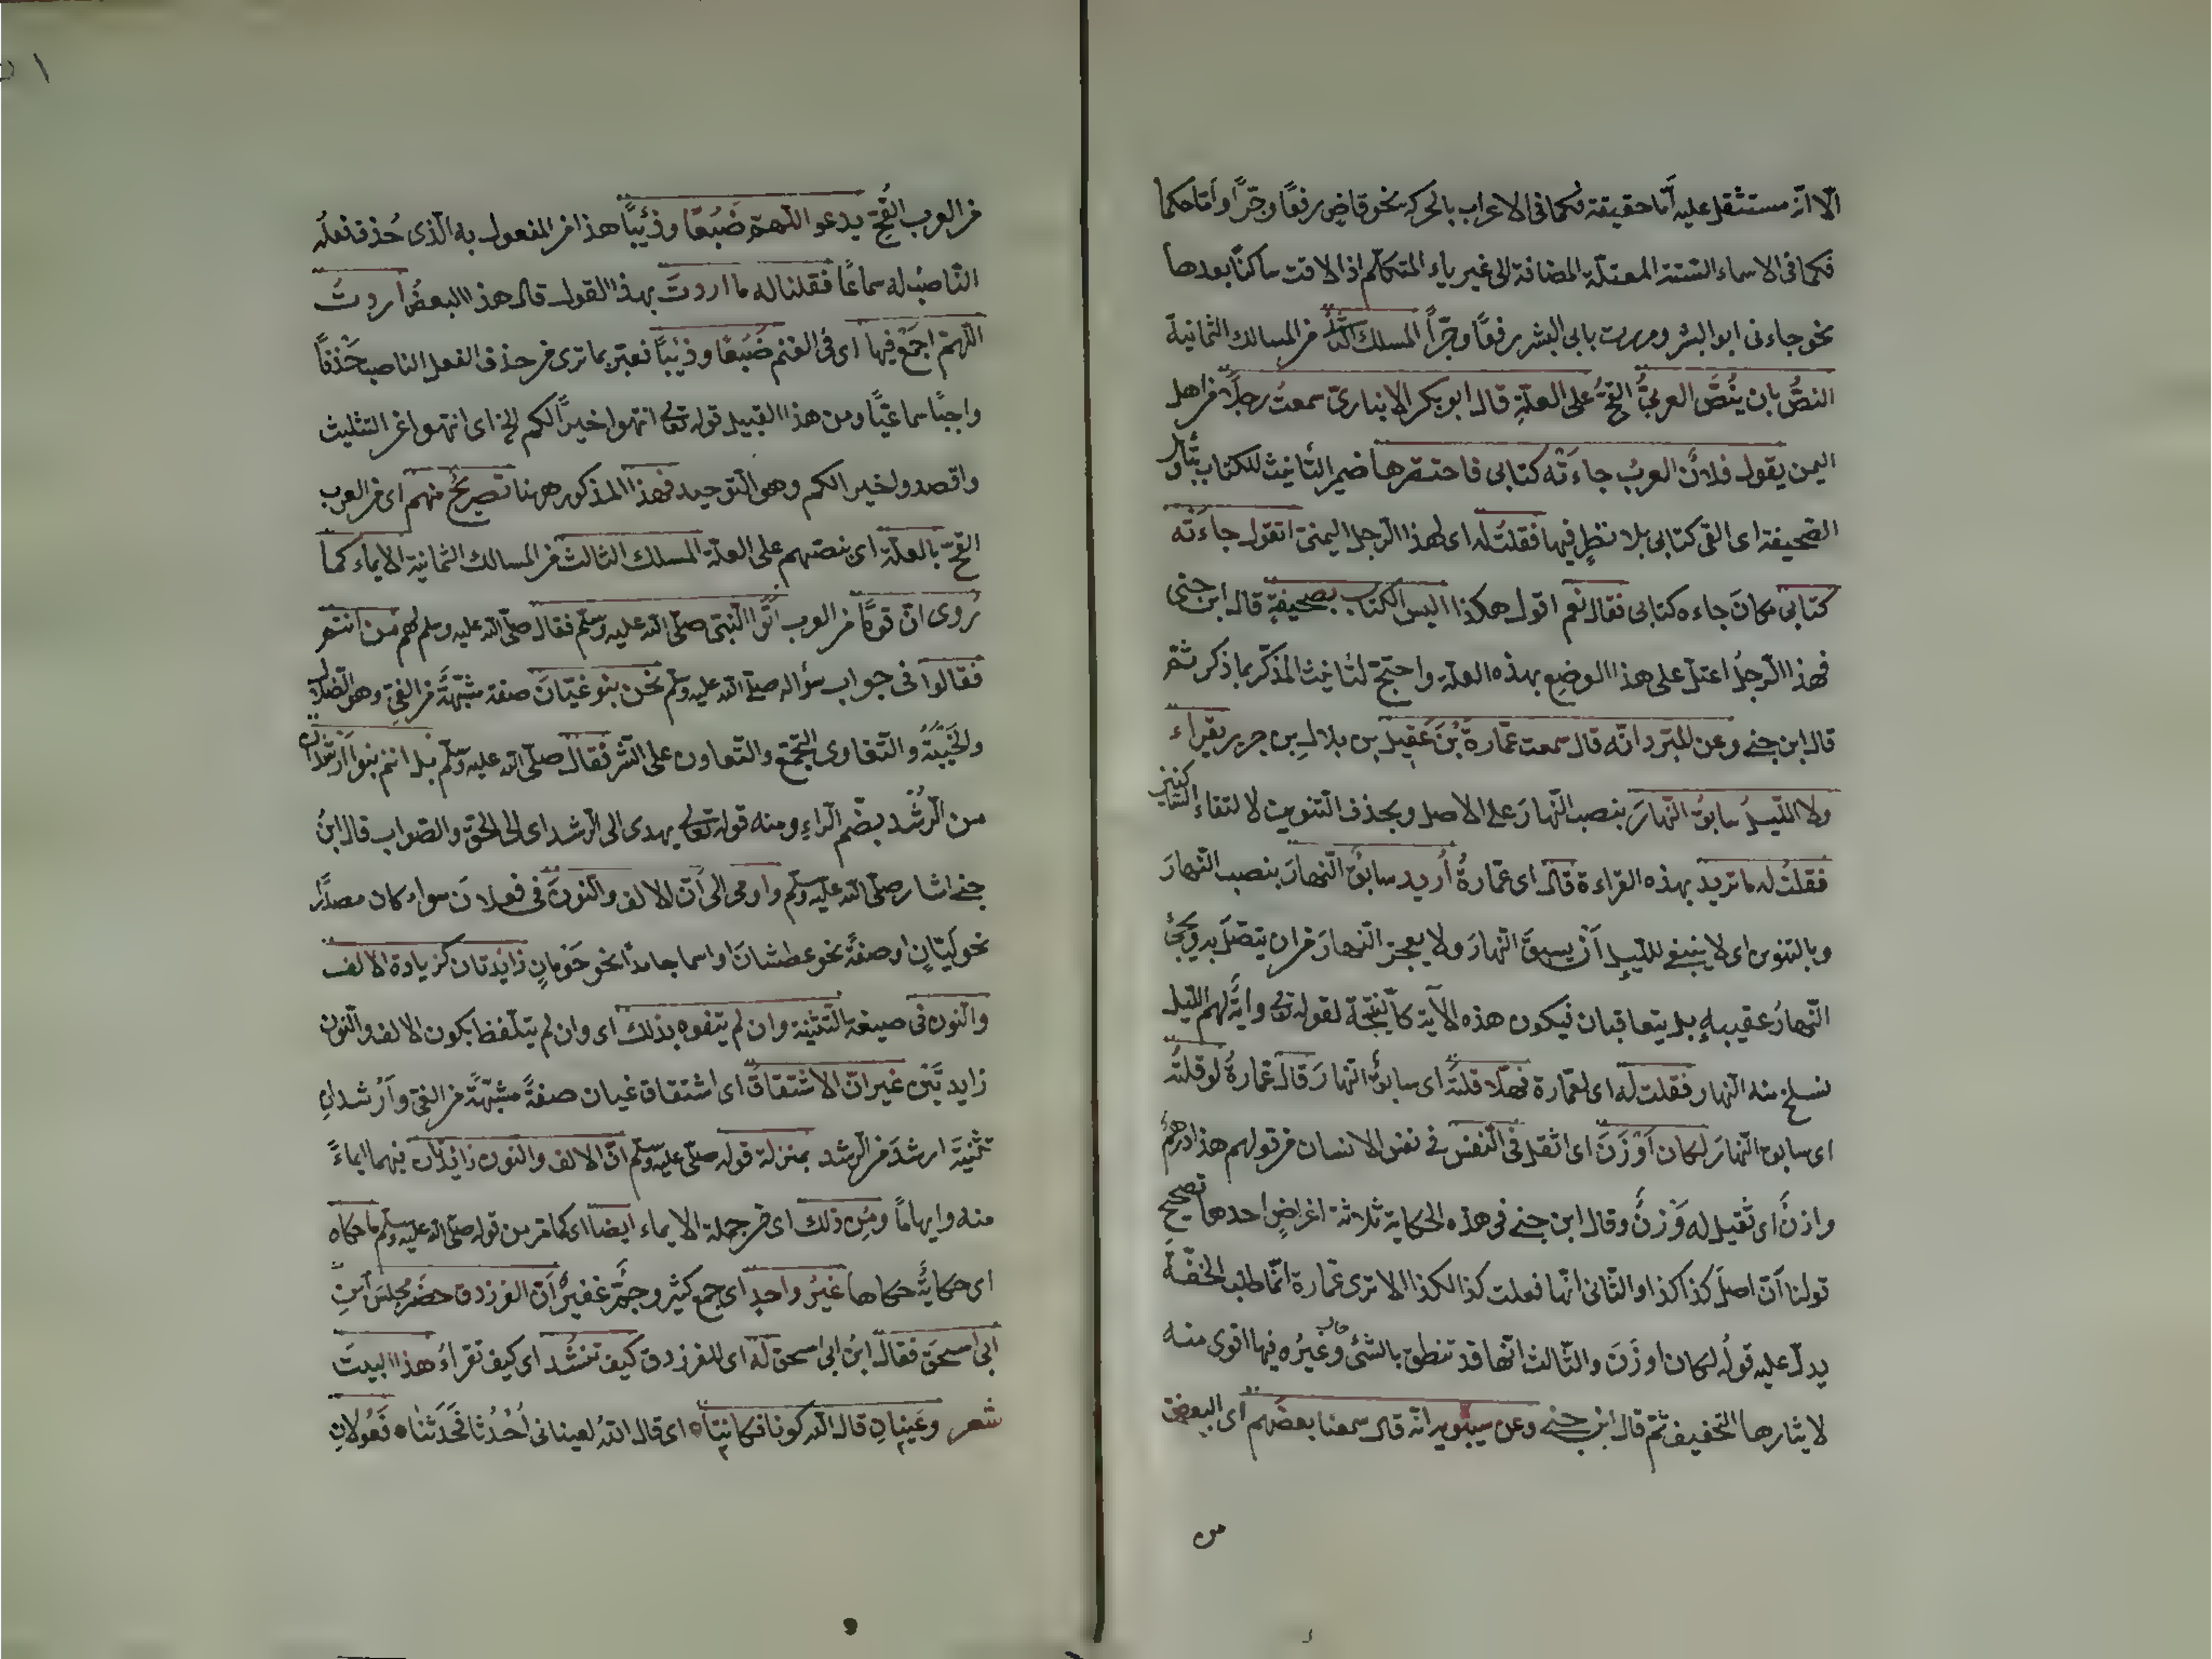 الا انه مستثقل عليه أمّا حقيقة فكما فى الاعراب بالحركة نحو قاضٍ رفعًا وجرًّا وامّا حكما
فكما فى الاسماء الستة المعتلّة المضافة الى غير ياء المتكلّم اذا لاقت ساكنًا بعدها
نحو جاءنى ابو البشر ومررت بابى البشر رفعًا وجرًّا المسلك الثانى من المسالك الثمانية
النصُّ بان ينُصَّ العربىُّ القحُّ على العلّةِ قال ابو بكر الانبارىّ سمعتُ رجلًا من اهل
اليمن يقول فلانٌ لغوبٌ جاءَتْه كتابى فاحتقرها ضمير التأنيث للكتاب بتأول
الصحيفة اى القى كتابى بلا نظرٍ فيها فقلتُ له اى لهذا الرجل اليمنىّ اتقول جاءَتْه
كتابى مكانَ جاءه كتابى فقال نعم اقول هكذا اليس الكتاب بصحيفةٍ قال ابن جنى
فهذا الرجلُ اعتلّ على هذا الوضع بهذه العلّة واحتجّ لتأنيث المذكّر بما ذكر ثمّ
قال ابن جنى وعن المبرّد انّه قال سمعت عُمارةَ بْنَ عَقِيل بن بلالِ بن جرير يقراء
ولا الليلُ سابقُ النّهارَ بنصب النّهارَ على الاصل وبحذف التنوين لالتقاء الساكنين
فقلتُ له ما تريد بهذه القراءة قال اى عمارةُ اُريد سابقٌ النّهارَ بنصب النّهارَ
وبالتنوين اى لا ينبغى للّيلِ اَنْ يسبقَ النّهارَ ولا يعجز النّهارَ من ان يتصل به ويجئَ
النّهارُ عقيبهِ بل يتعاقبان فيكون هذه الآية كالنتيجة لقوله تع وايةٌ لهم الليل
نسلخ منه النّهار فقلت له اى لعمارة فهلّا قلتَه اى سابقٌ النّهارَ قال عمارةُ لو قلتُه
اى سابقٌ النّهارَ لكان اَوْزَنَ اى اثقل فى النّفس فى نفس الانسان من قولهم هذا درهمٌ
وازنٌ اى ثقيل له وَزْنٌ وقال ابن جنى فى هذه الحكاية ثلاثة اغراضٍ احدها تصحيح
قولنا أنّ اصلَ كذا كذا والثّانى انّها فعلت كذا لكذا الا ترى عُمارة انّما طلب الخفّةَ
يدلّ عليه قولُه لكان اوزَنَ والثّالث انّها قد تنطق بالشئ وغيرُه فيها اقوى منه
لايثارها التخفيف ثمّ قال ابن جنى وعن سيبويه انّه قال سمعنا بعضهم اى البعض
من
من العرب القُحّ يدعو اللّهمّ ضَبُعًا وذئبًا هذا من المفعول به الّذى حُذف فعلُه
النّاصبُ له سماعًا فقلنا له ما اردتَ بهذا القول قال هذا البعضُ اردتُ
اللّهمّ اجمَعْ فيها اى فى الغنم ضَبُعًا وذئبًا نعتبر بما ترى من حذف الفعل الناصب حَذْفًا
واجبًا سماعيًّا ومن هذا القبيل قوله تعالى انتهوا خيرًا لكم الخ اى انتهوا عن التثليث
واقصدوا خيرا لكم وهو التوحيد فهذا المذكور ههنا تصريحٌ منهم اى من العرب
القُحّ بالعلّة اى بنصّهم على العلّة المسلك الثالث من المسالك الثمانية الايماء كما
رُوى انّ قومًا من العرب اتوا النّبىّ صلّى الله عليه وسلّم فقال صلّى الله عليه وسلم لهم من انتم
فقالوا فى جواب سؤاله صلى الله عليه وسلّم نحن بنو غيّانَ صفة مشبّهةٌ من الغىّ وهو الضلال
والخَيبةُ والتّغاوى التّجمّع والتّعاون على الشّر فقال صلّى الله عليه وسلّم بل انتم بنوا رَشْدان
من الرُّشد بضم الرّاءِ ومنه قوله تعالى يهدى الى الرّشد اى الى الحقّ والصّواب قال ابنُ
جنى اشار صلّى الله عليه وسلّم واومى الى أنّ الالف والنّونَ فى فعلانَ سواء كان مصدرًا
نحو لَيّانٍ او صفةً نحو عطشانَ او اسما جامدًا نحو حَوْمانٍ زائدتان كزيادة الالف
والنّون فى صيغة التّثنية وان لم يتفوه بذلك اى وان لم يتلفظ بكون الالف والنّون
زايدتَيْن غير انّ الاشتقاقَ اى اشتقاق غيان صفةً مشبّهةً من الغىّ وأرشدانِ
تثنيةَ ارشدَ من الرّشد بمنزلة قوله صلّى عليه وسلّم انّ الالف والنون زائدتان فيهما ايماءً
منه وايهامًا ومِن ذلك اى من جملة الايماء ايضا اى كما مرّ من قوله صلى الله عليه وسلّم ما حكاه
اى حكايةً حكاها غيرُ واحدٍ اى جمع كثير وجمٌّ غفيرٌ أنّ الفرزدق حضَرَ مجلسَ ابنِ
ابى اسحق فقال ابنُ ابى اسحق له اى للفرزدق كيف تنشُد اى كيف تقراءُ هذا البيتَ
شعر وعَينانِ قال الله كونا فكانتا ٥ اى قال اللهُ لعينانى اُحْدُثا فحَدَثتا ٥ فَعُولانِ